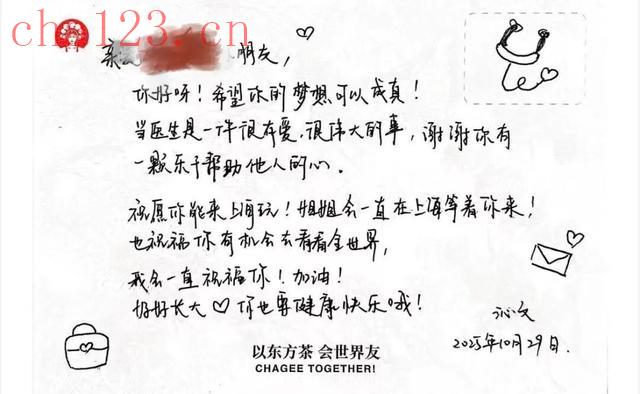 ch123.cn
亲 朋友，
你好呀！希望你的梦想可以成真！
当医生是一件很有爱、很伟大的事，谢谢你有
一颗乐于帮助他人的心。
祝愿你能来上海玩！姐姐会一直在上海等着你来！
也祝福你有机会去看看全世界，
我会一直祝福你！加油！
好好长大♡你也要健康快乐哦！
2025年10月29日.
以东方茶 会世界友
CHAGEE TOGETHER!